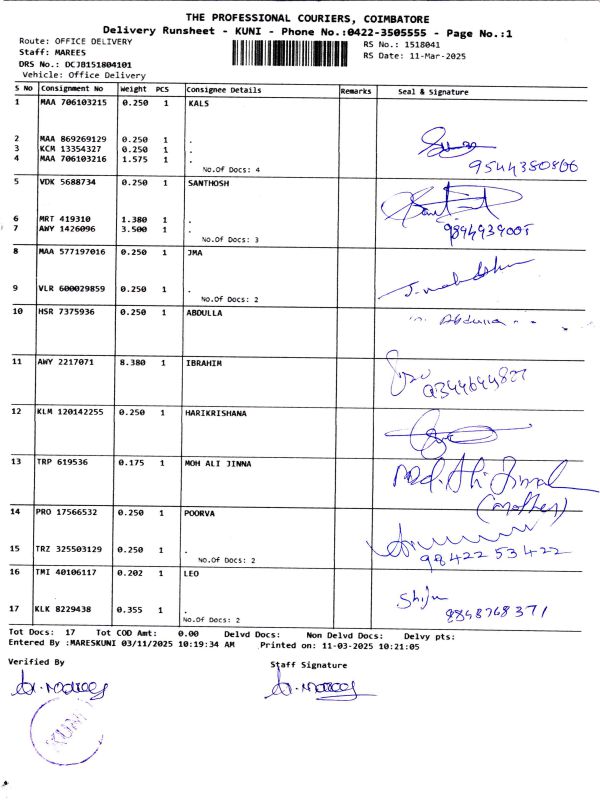 THE PROFESSIONAL COURIERS, COIMBATORE
Delivery Runsheet - KUNI - Phone No.:0422-3505555 - Page No.:1
Route: OFFICE DELIVERY
RS No.: 1518041
Staff: MAREES
RS Date: 11-Mar-2025
DRS No.: DCJB151804101
Vehicle: Office Delivery
S No Consignment No Weight PCS Consignee Details Remarks Seal & Signature
1 MAA 706103215 0.250 1 KALS
2 MAA 869269129 0.250 1 .
3 KCM 13354327 0.250 1 .
4 MAA 706103216 1.575 1 .
No.Of Docs: 4
5 VDK 5688734 0.250 1 SANTHOSH
6 MRT 419310 1.380 1 .
7 AWY 1426096 3.500 1 .
No.Of Docs: 3
8 MAA 577197016 0.250 1 JMA
9 VLR 600029859 0.250 1 .
No.Of Docs: 2
10 HSR 7375936 0.250 1 ABDULLA
11 AWY 2217071 8.380 1 IBRAHIM
12 KLM 120142255 0.250 1 HARIKRISHANA
13 TRP 619536 0.175 1 MOH ALI JINNA
(mother)
14 PRO 17566532 0.250 1 POORVA
15 TRZ 325503129 0.250 1 .
98422 53422
No.Of Docs: 2
16 TMI 40106117 0.202 1 LEO
17 KLK 8229438 0.355 1 .
8848768371
No.Of Docs: 2
Tot Docs: 17 Tot COD Amt: 0.00 Delvd Docs: Non Delvd Docs: Delvy pts:
Entered By :MARESKUNI 03/11/2025 10:19:34 AM Printed on: 11-03-2025 10:21:05
Verified By
Staff Signature
KUNI